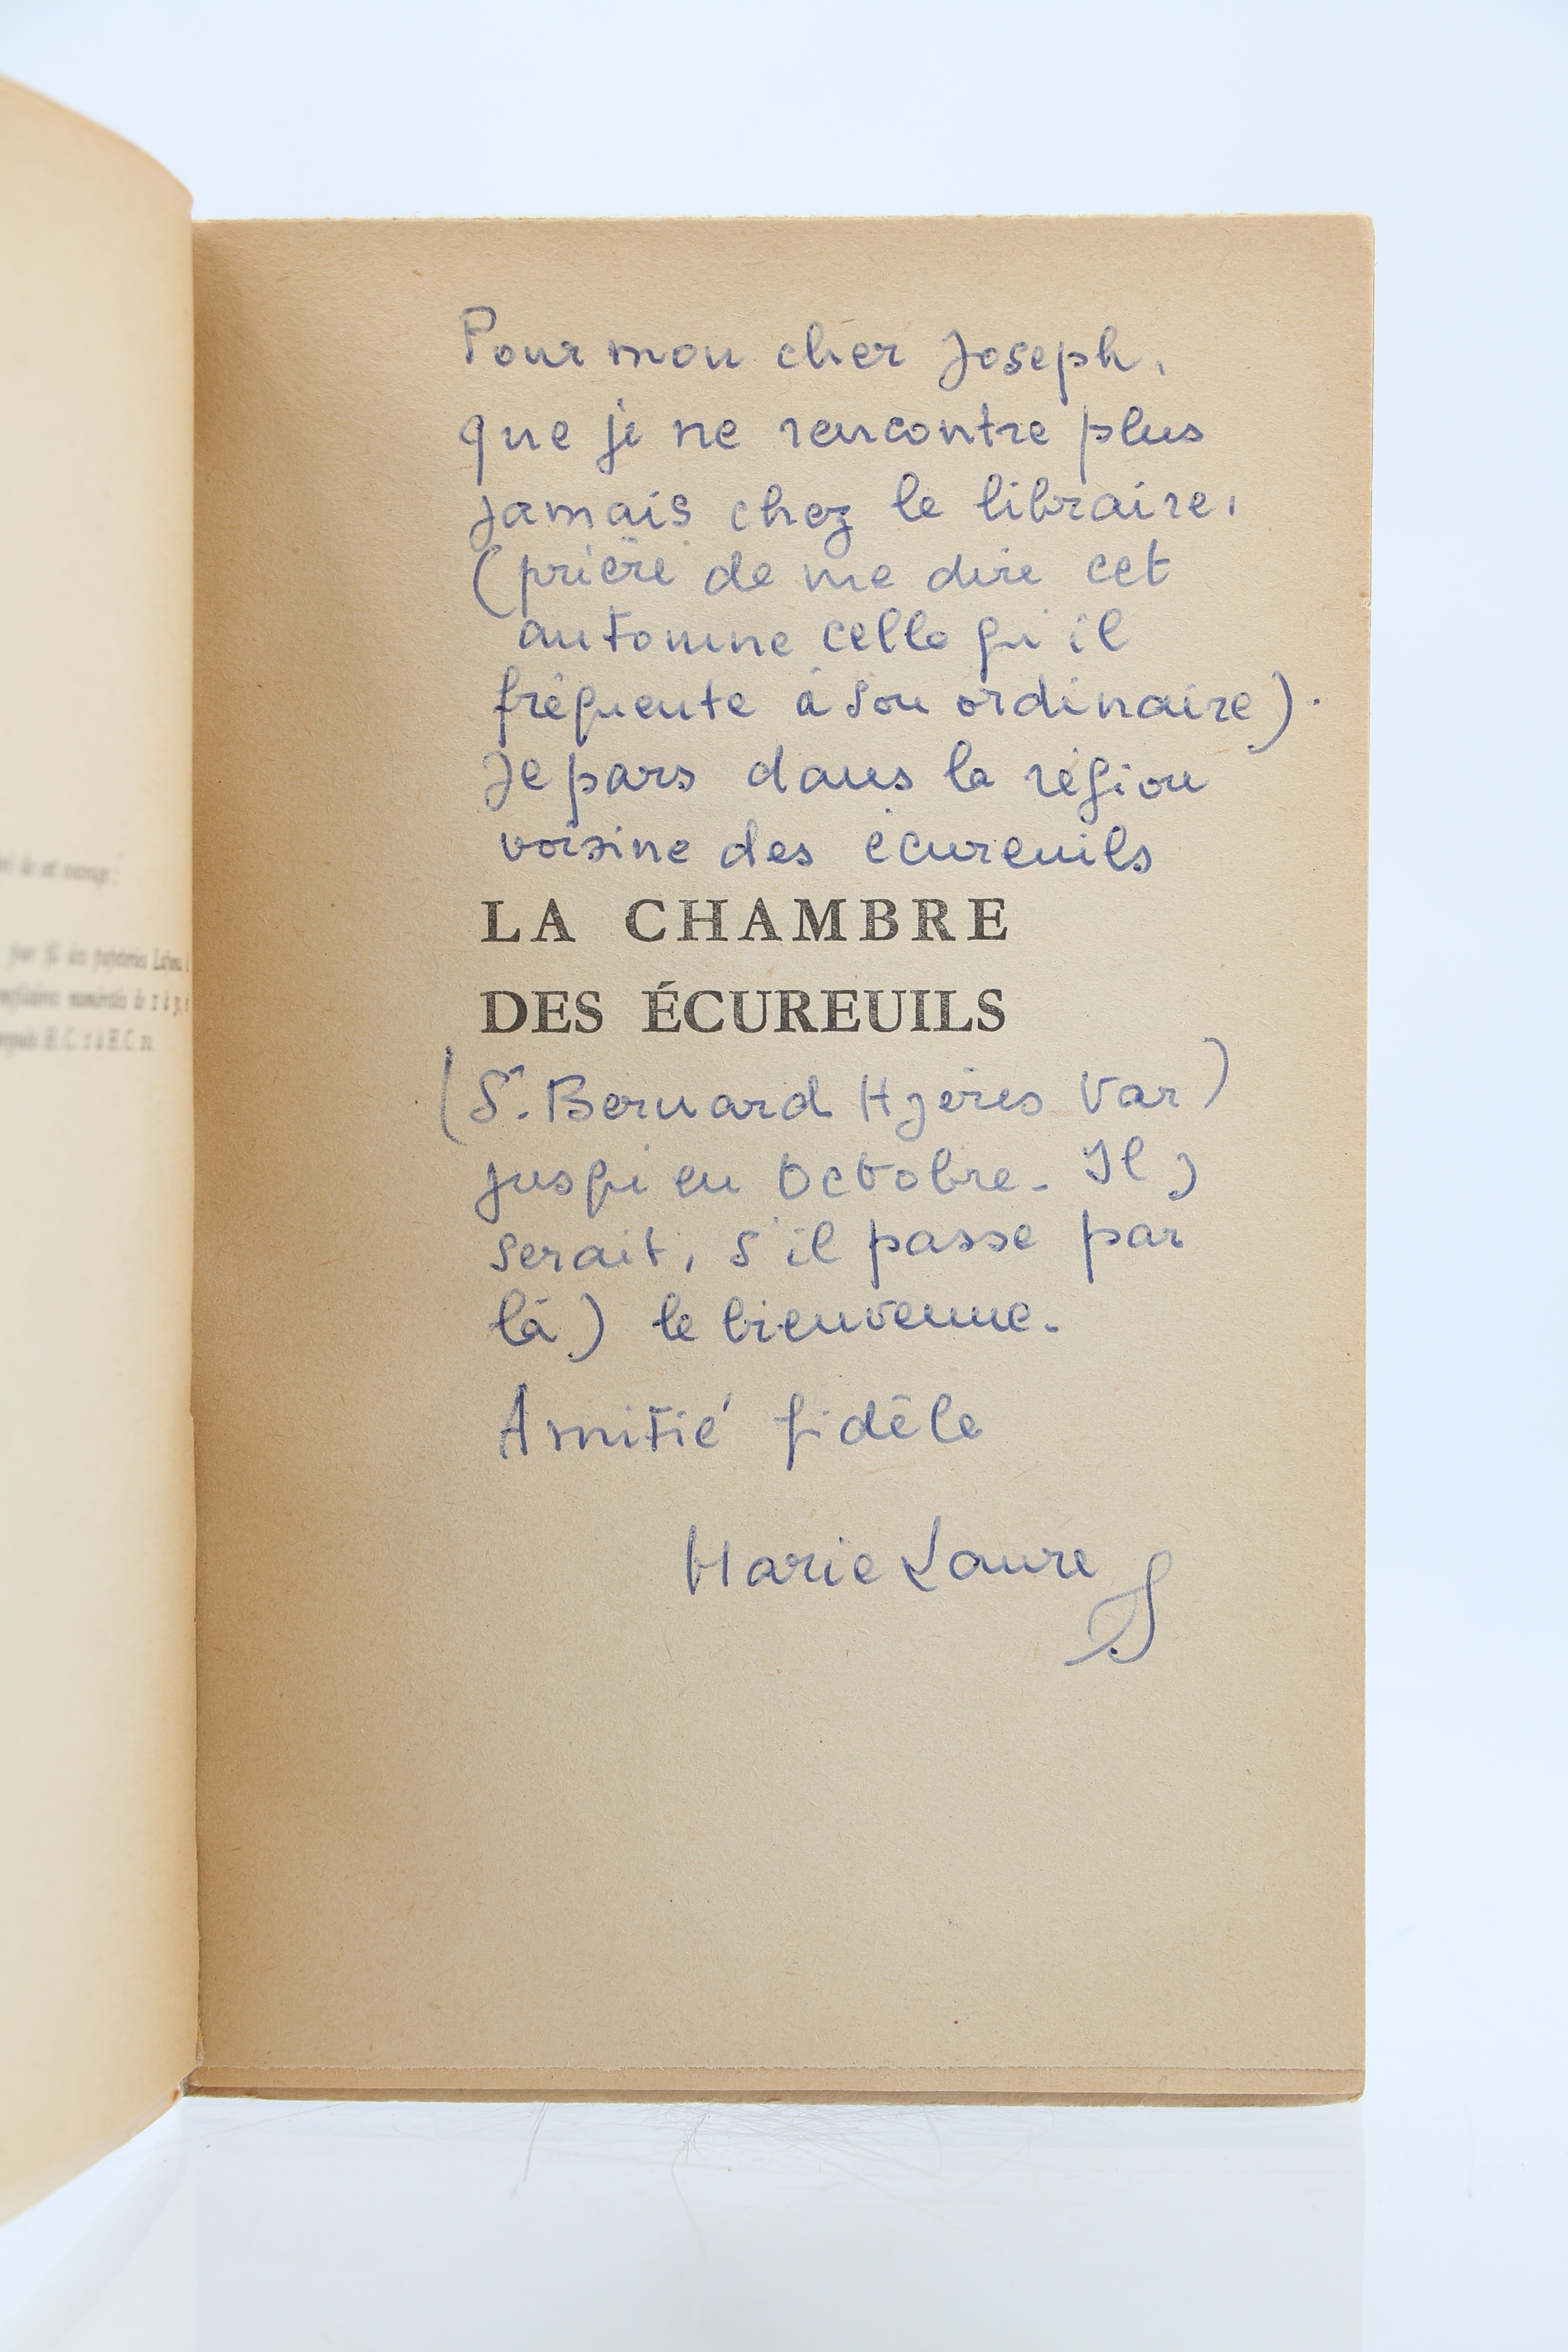 Pour mon cher Joseph,
que je ne rencontre plus
jamais chez le libraire,
(prière de me dire cet
automne celle qu'il
fréquente à son ordinaire).
Je pars dans la région
voisine des écureuils
LA CHAMBRE
DES ÉCUREUILS
(St. Bernard Hyères Var)
jusqu'en Octobre. Il y
serait, s'il passe par
là) le bienvenue.
Amitié fidèle
Marie Laure
de cet ouvrage :
pur fil des papeteries
numérotés de 1 à
H.C. 1 à H.C.